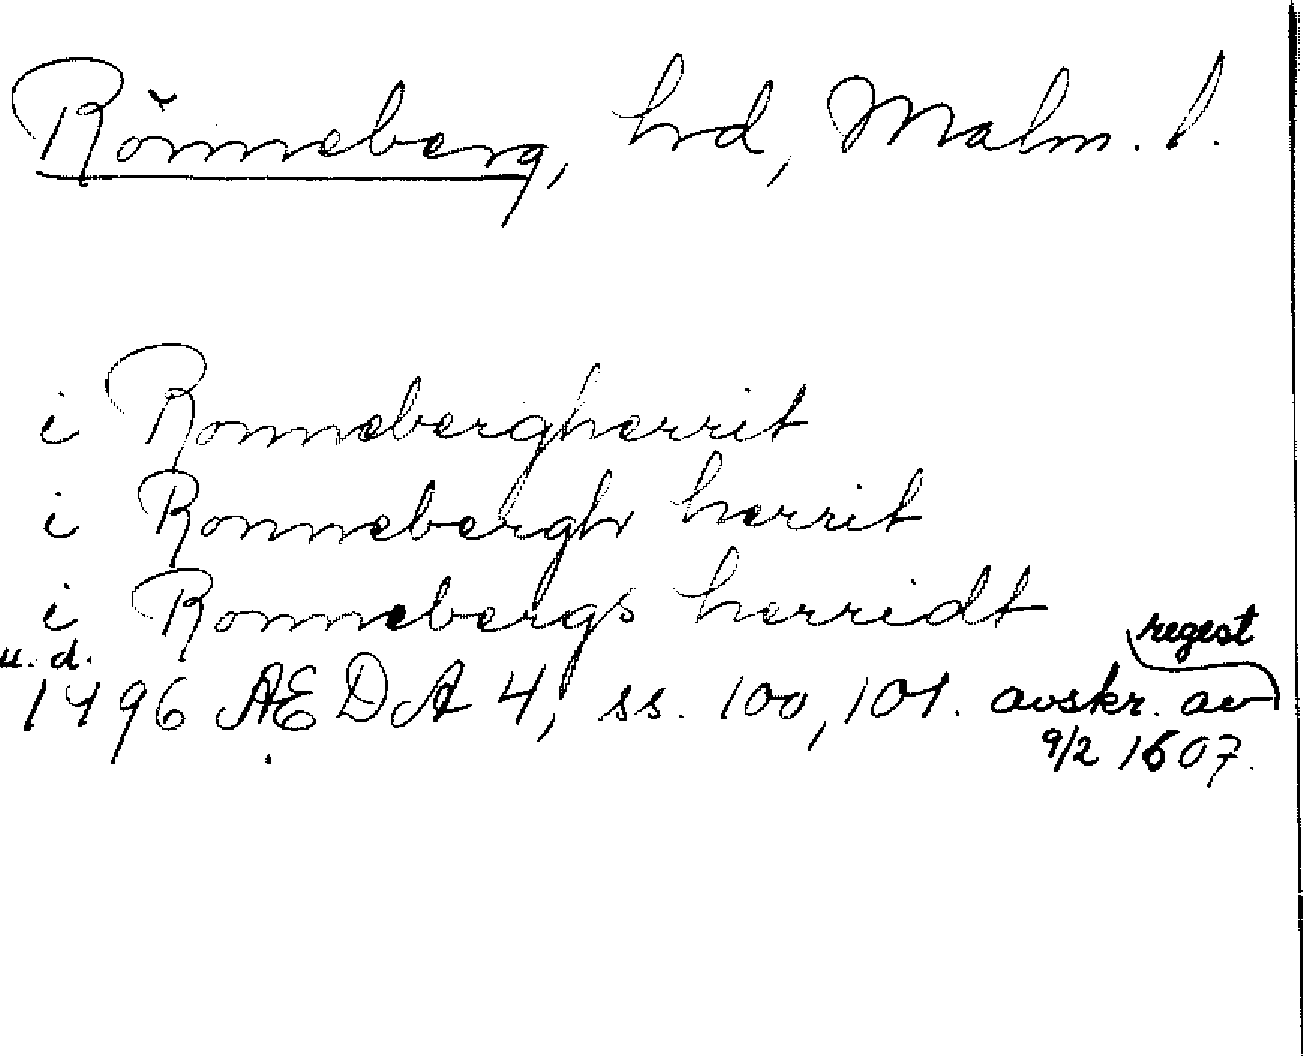 Rönneberg, hrd, Malm. l.
i Ronneberghherrit
i Ronnebergh herrit
i Ronnebergs herridt
u. d. regest
1496 ÆDA 4, ss. 100, 101. avskr. av
9/2 1607.